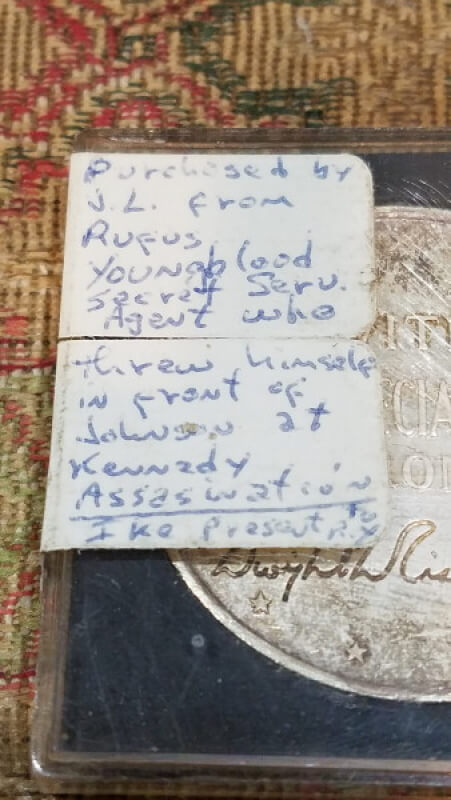 Purchased by
J.L. from
Rufus
Youngblood
Secret Serv.
Agent who
threw himself
in front of
Johnson at
Kennedy
Assasination
Ike Present to R.Y
Dwight D Eis